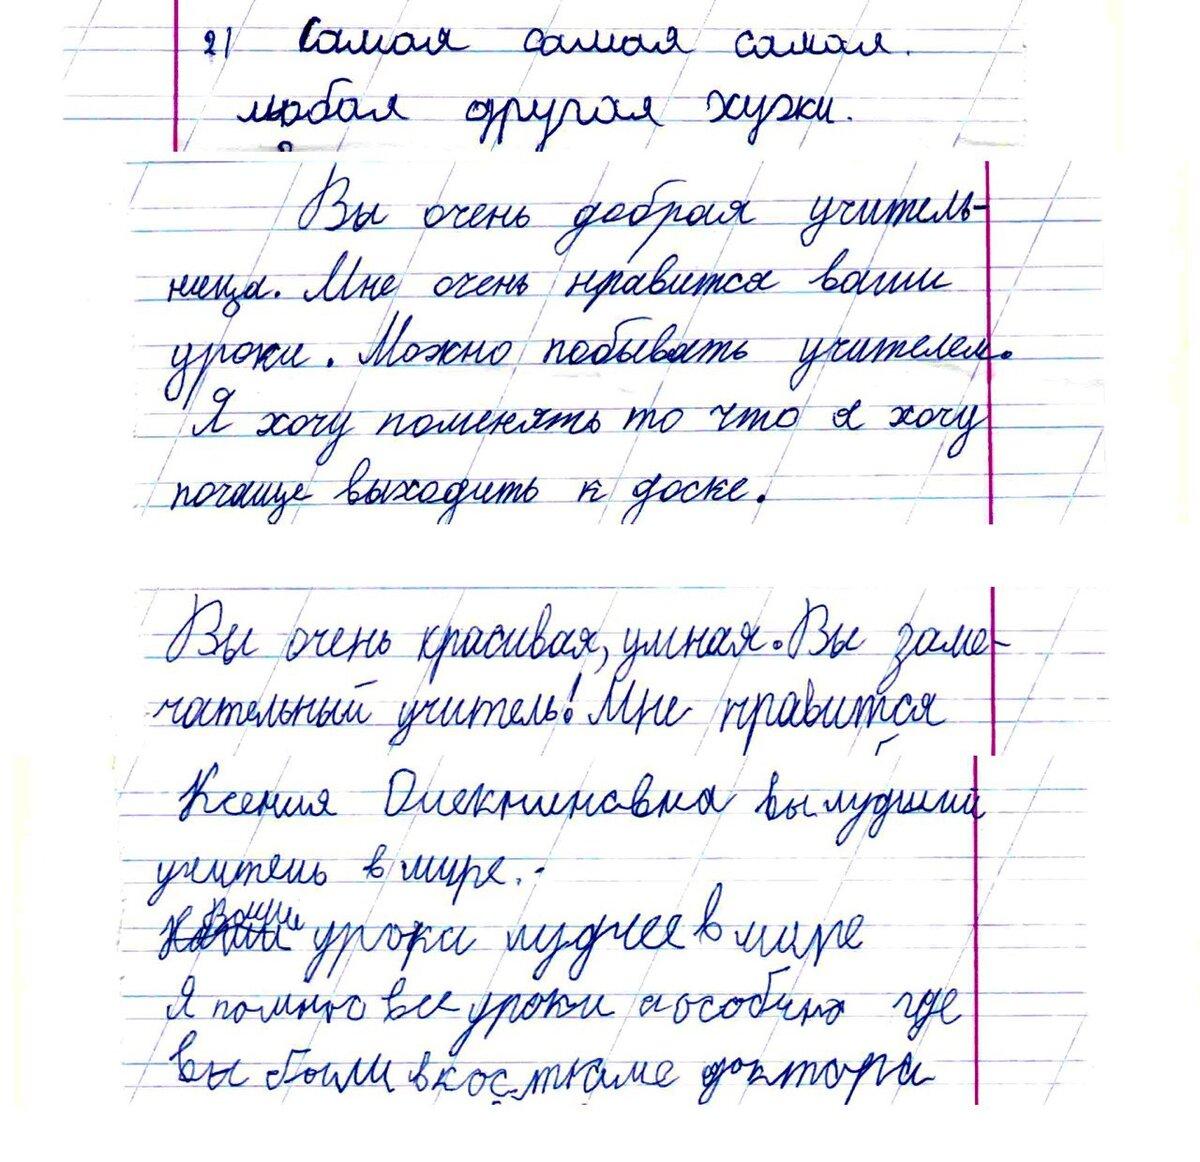 2) Самая самая самая.
любая другая хужи.
Вы очень добрая учитель-
ница. Мне очень нравится ваши
уроки. Можно побывать учителем.
Я хочу поменять то что я хочу
почаще выходить к доске.
Вы очень красивая, умная. Вы заме-
чательный учитель! Мне нравится
Ксения вы лудший
учитель в мире.
Ваши уроки лудчее в мире
Я помню все уроки а особено где
вы были в костюме доктора